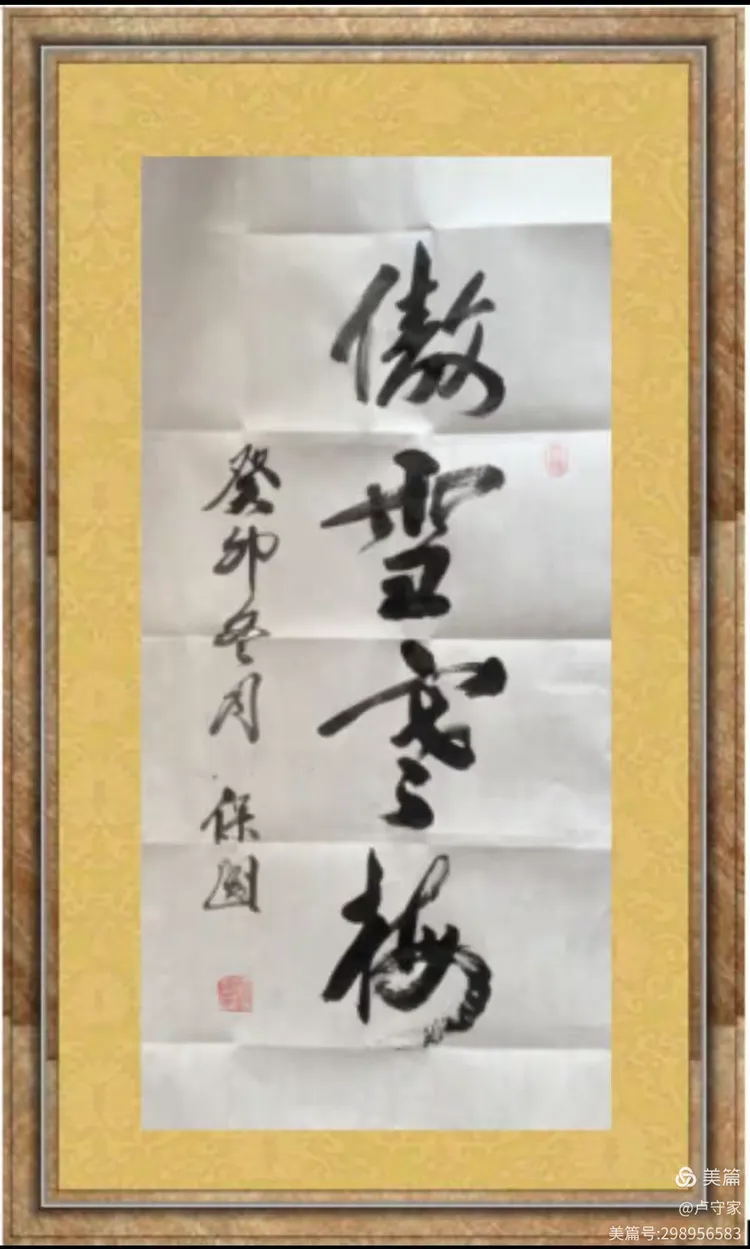 傲雪寒梅
癸卯冬月 保国
美篇
@卢守家
美篇号:298956583